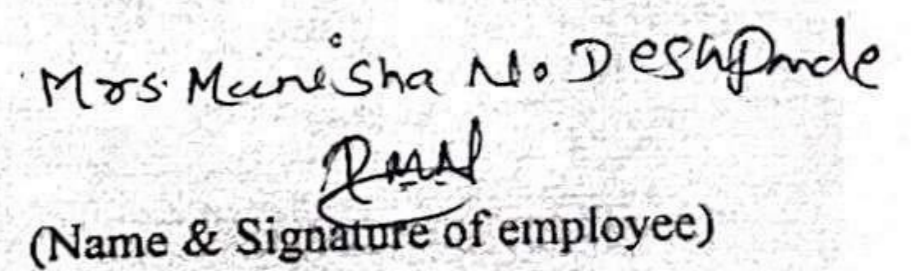 Mrs. Manisha N. Deshpande
(Name & Signature of employee)